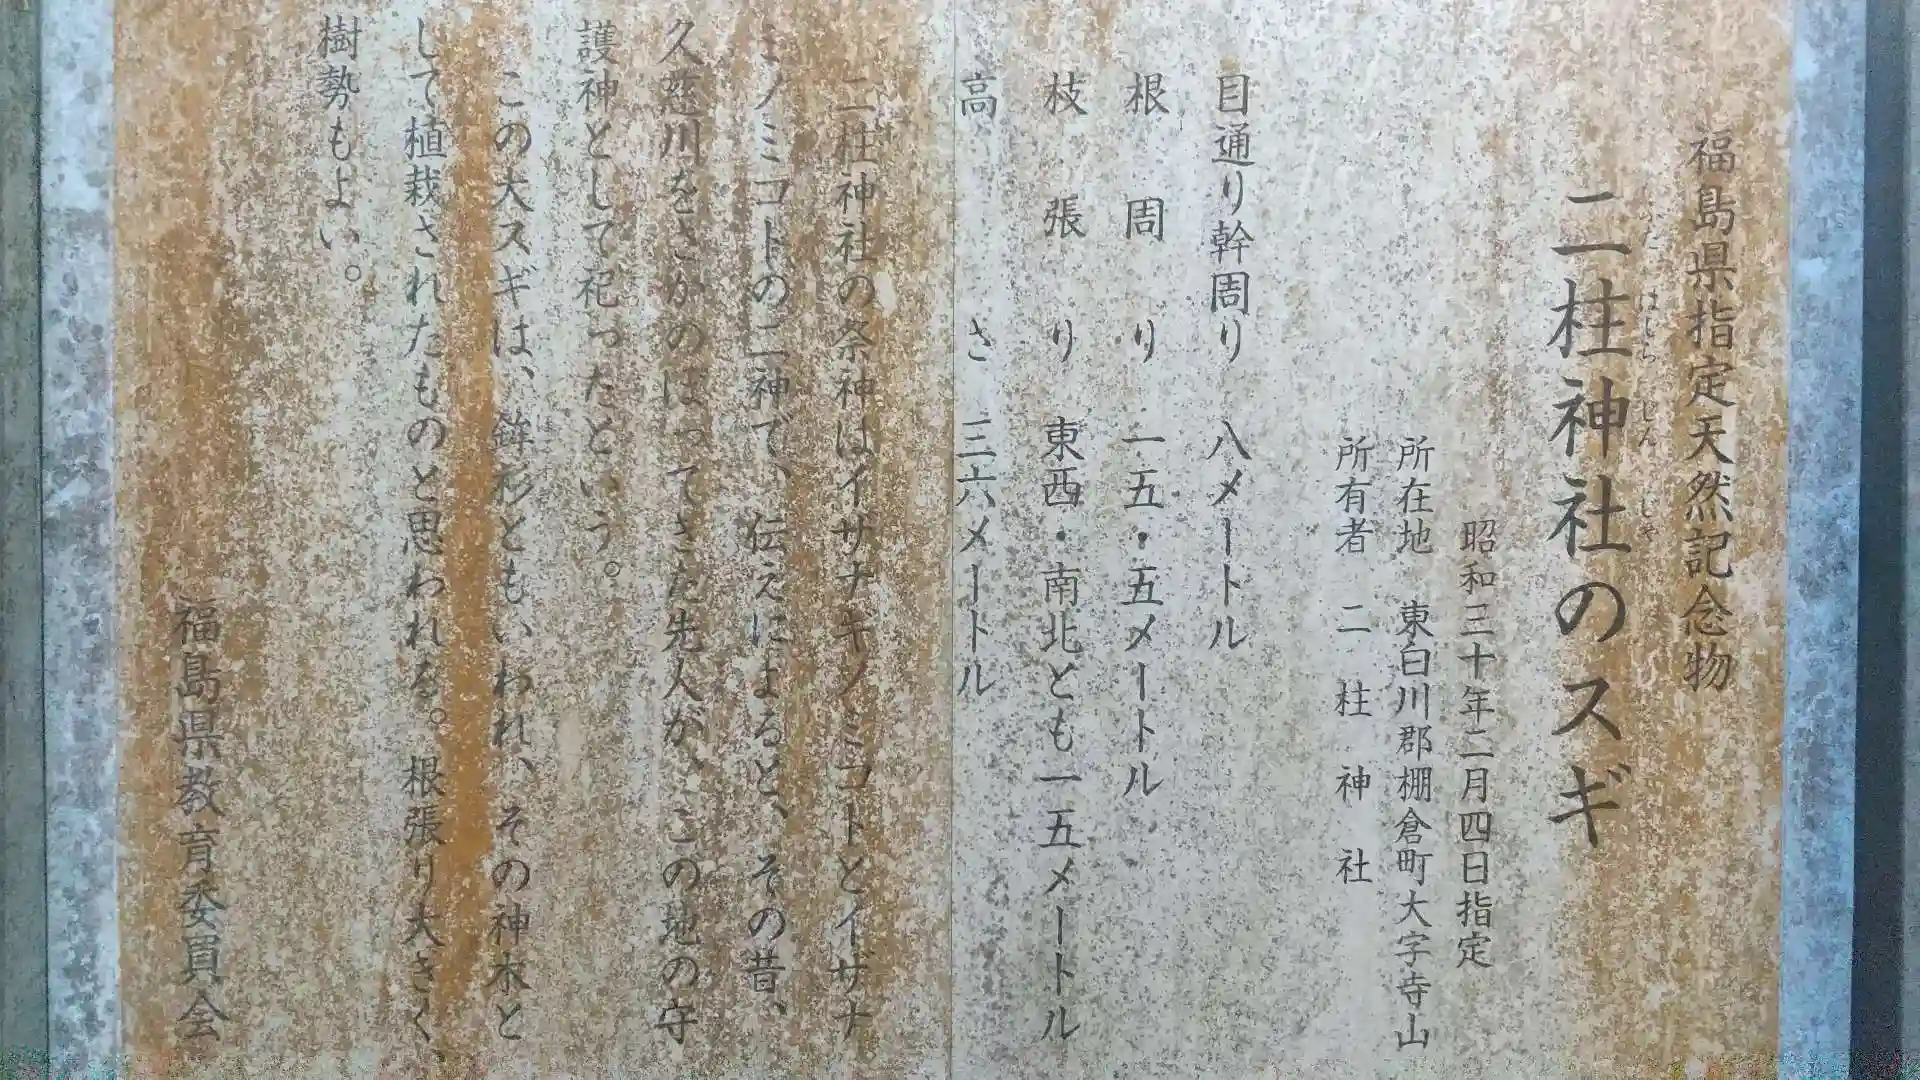 福島県指定天然記念物
二柱神社のスギ
ふたはしらじんじゃ
昭和三十年二月四日指定
所在地 東白川郡棚倉町大字寺山
所有者 二柱神社
目通り幹周り 八メートル
根周り 一五・五メートル
枝張り 東西・南北とも一五メートル
高さ 三六メートル
二柱神社の祭神はイザナキノミコトとイザナ
ミノミコトの二神で、伝えによると、その昔、
久慈川をさかのぼってきた先人が、この地の守
護神として祀ったという。
この大スギは、鉾杉ともいわれ、その神木と
して植栽されたものと思われる。根張り大きく、
樹勢もよい。
福島県教育委員会